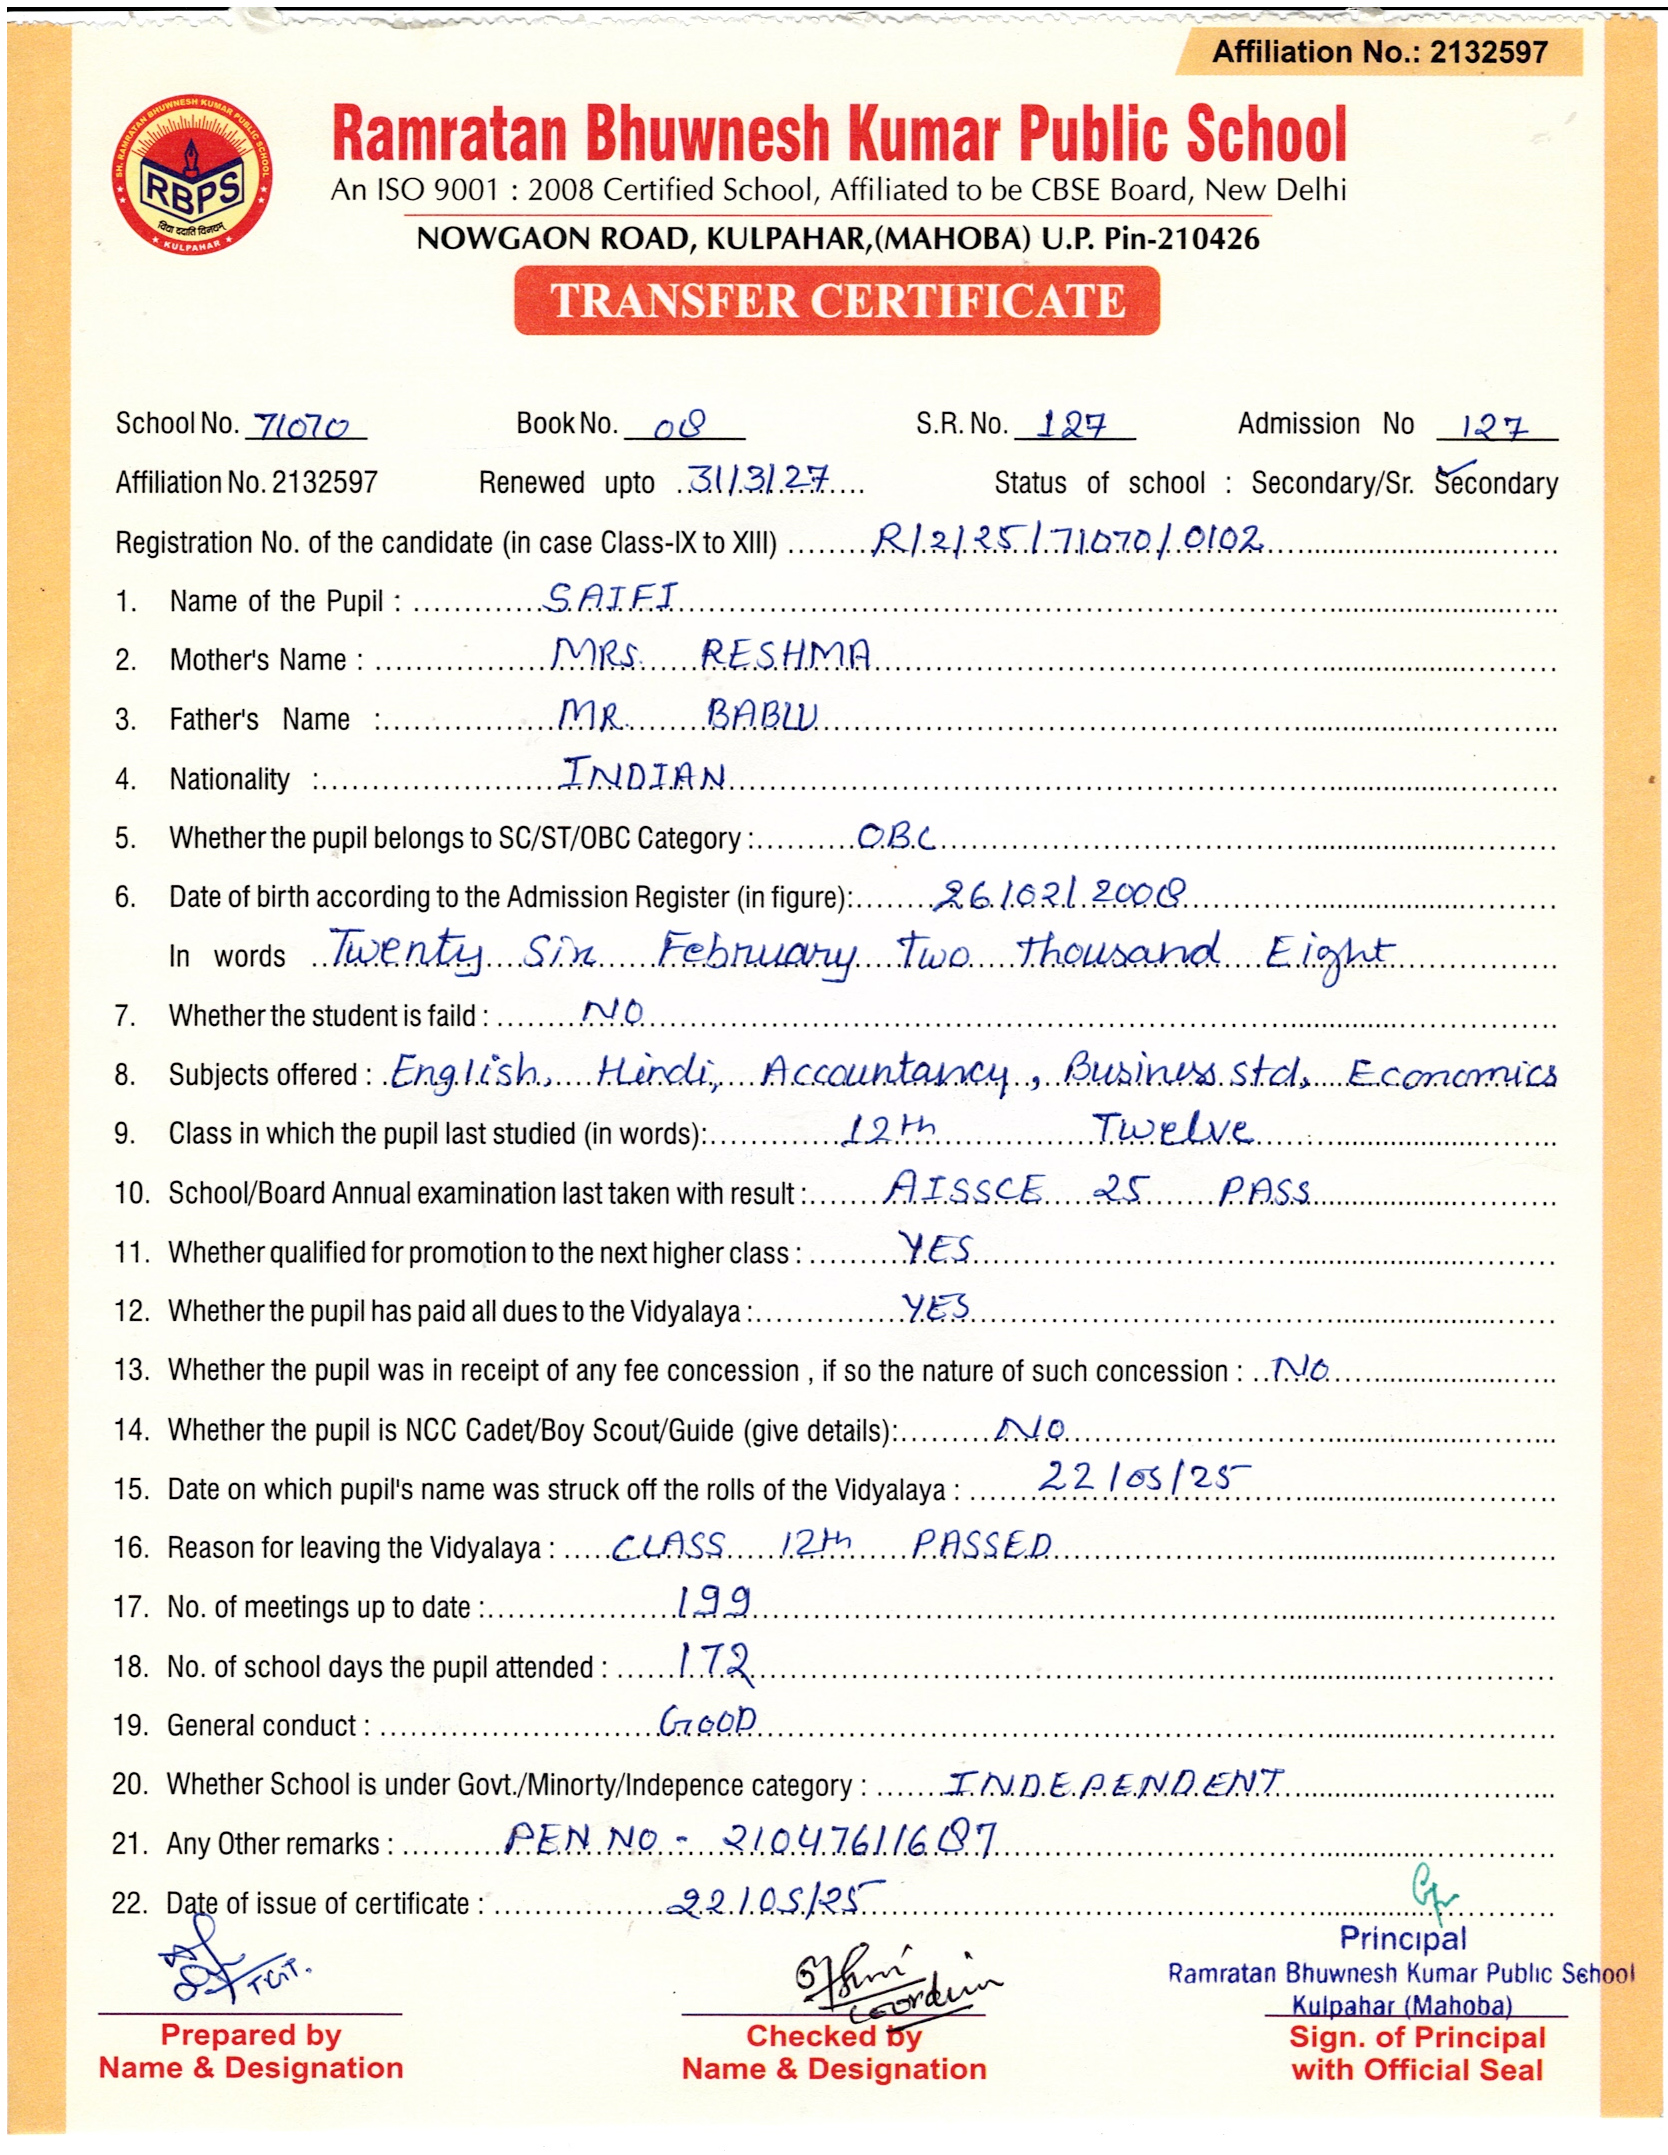 Affiliation No.: 2132597
SH. RAMRATAN BHUWNESH KUMAR PUBLIC SCHOOL
RBPS
विद्या ददाति विनयम्
★ KULPAHAR ★
Ramratan Bhuwnesh Kumar Public School
An ISO 9001 : 2008 Certified School, Affiliated to be CBSE Board, New Delhi
NOWGAON ROAD, KULPAHAR,(MAHOBA) U.P. Pin-210426
TRANSFER CERTIFICATE
School No. 71070 Book No. 08 S.R. No. 127 Admission No 127
Affiliation No. 2132597 Renewed upto 31/3/27 Status of school : Secondary/Sr. Secondary
Registration No. of the candidate (in case Class-IX to XIII) R/2/25/71070/0102
1. Name of the Pupil : SAIFI
2. Mother's Name : MRS. RESHMA
3. Father's Name : MR. BABLU
4. Nationality : INDIAN
5. Whether the pupil belongs to SC/ST/OBC Category : OBC
6. Date of birth according to the Admission Register (in figure): 26/02/2008
In words Twenty Six February Two Thousand Eight
7. Whether the student is faild : NO
8. Subjects offered : English, Hindi, Accountancy, Business std, Economics
9. Class in which the pupil last studied (in words): 12th Twelve
10. School/Board Annual examination last taken with result : AISSCE 25 PASS
11. Whether qualified for promotion to the next higher class : YES
12. Whether the pupil has paid all dues to the Vidyalaya : YES
13. Whether the pupil was in receipt of any fee concession , if so the nature of such concession : NO
14. Whether the pupil is NCC Cadet/Boy Scout/Guide (give details): NO
15. Date on which pupil's name was struck off the rolls of the Vidyalaya : 22/05/25
16. Reason for leaving the Vidyalaya : CLASS 12th PASSED
17. No. of meetings up to date : 199
18. No. of school days the pupil attended : 172
19. General conduct : GOOD
20. Whether School is under Govt./Minorty/Indepence category : INDEPENDENT
21. Any Other remarks : PEN NO - 21047611687
22. Date of issue of certificate : 22/05/25
TGT.
Principal
Ramratan Bhuwnesh Kumar Public School
Kulpahar (Mahoba)
Prepared by Checked by Sign. of Principal
Name & Designation Name & Designation with Official Seal